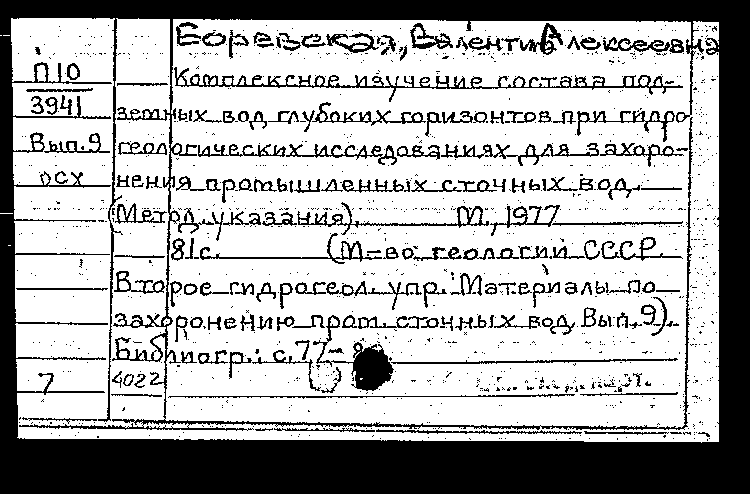 Боревская, Валентина Алексеевна
П10
3941
Комплексное изучение состава под-
земных вод глубоких горизонтов при гидро
Вып.9
геологических исследованиях для захоро-
осх
нения промышленных сточных вод.
(Метод. указания). М., 1977
81с. (М-во геологии СССР.
Второе гидрогеол. упр. Материалы по
захоронению пром. сточных вод, Вып. 9).
Библиогр.: с. 77-
7
4022